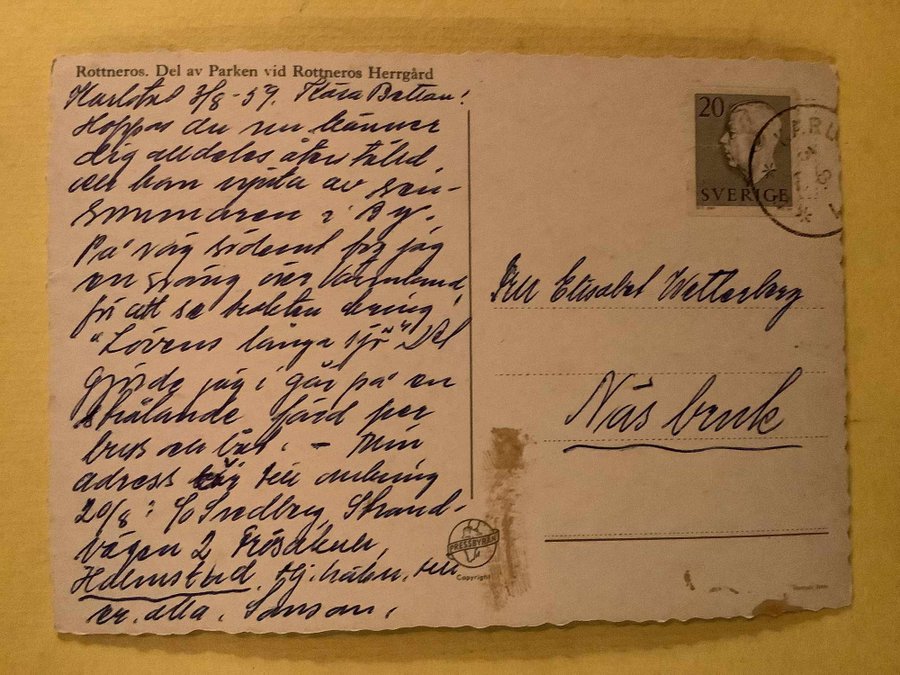 Rottneros. Del av Parken vid Rottneros Herrgård
Karlstad 3/8-59. Kära Battan!
Hoppas du nu känner
dig alldeles återställd
och kan njuta av sen-
sommaren i By.
På väg söderut for jag
en sväng över Värmland
för att se trakten kring
"Lövens långa sjö" Det
gjorde jag i går på en
strålande färd per
buss och båt. - Min
adress är till omkring
20/8: c/o Svedberg, Strand-
vägen 2,
Halmstad. Hj. häls. till
er alla.
20
SVERIGE
Elisabet Wetterberg
Näs bruk
PRESSBYRÅN
Copyright